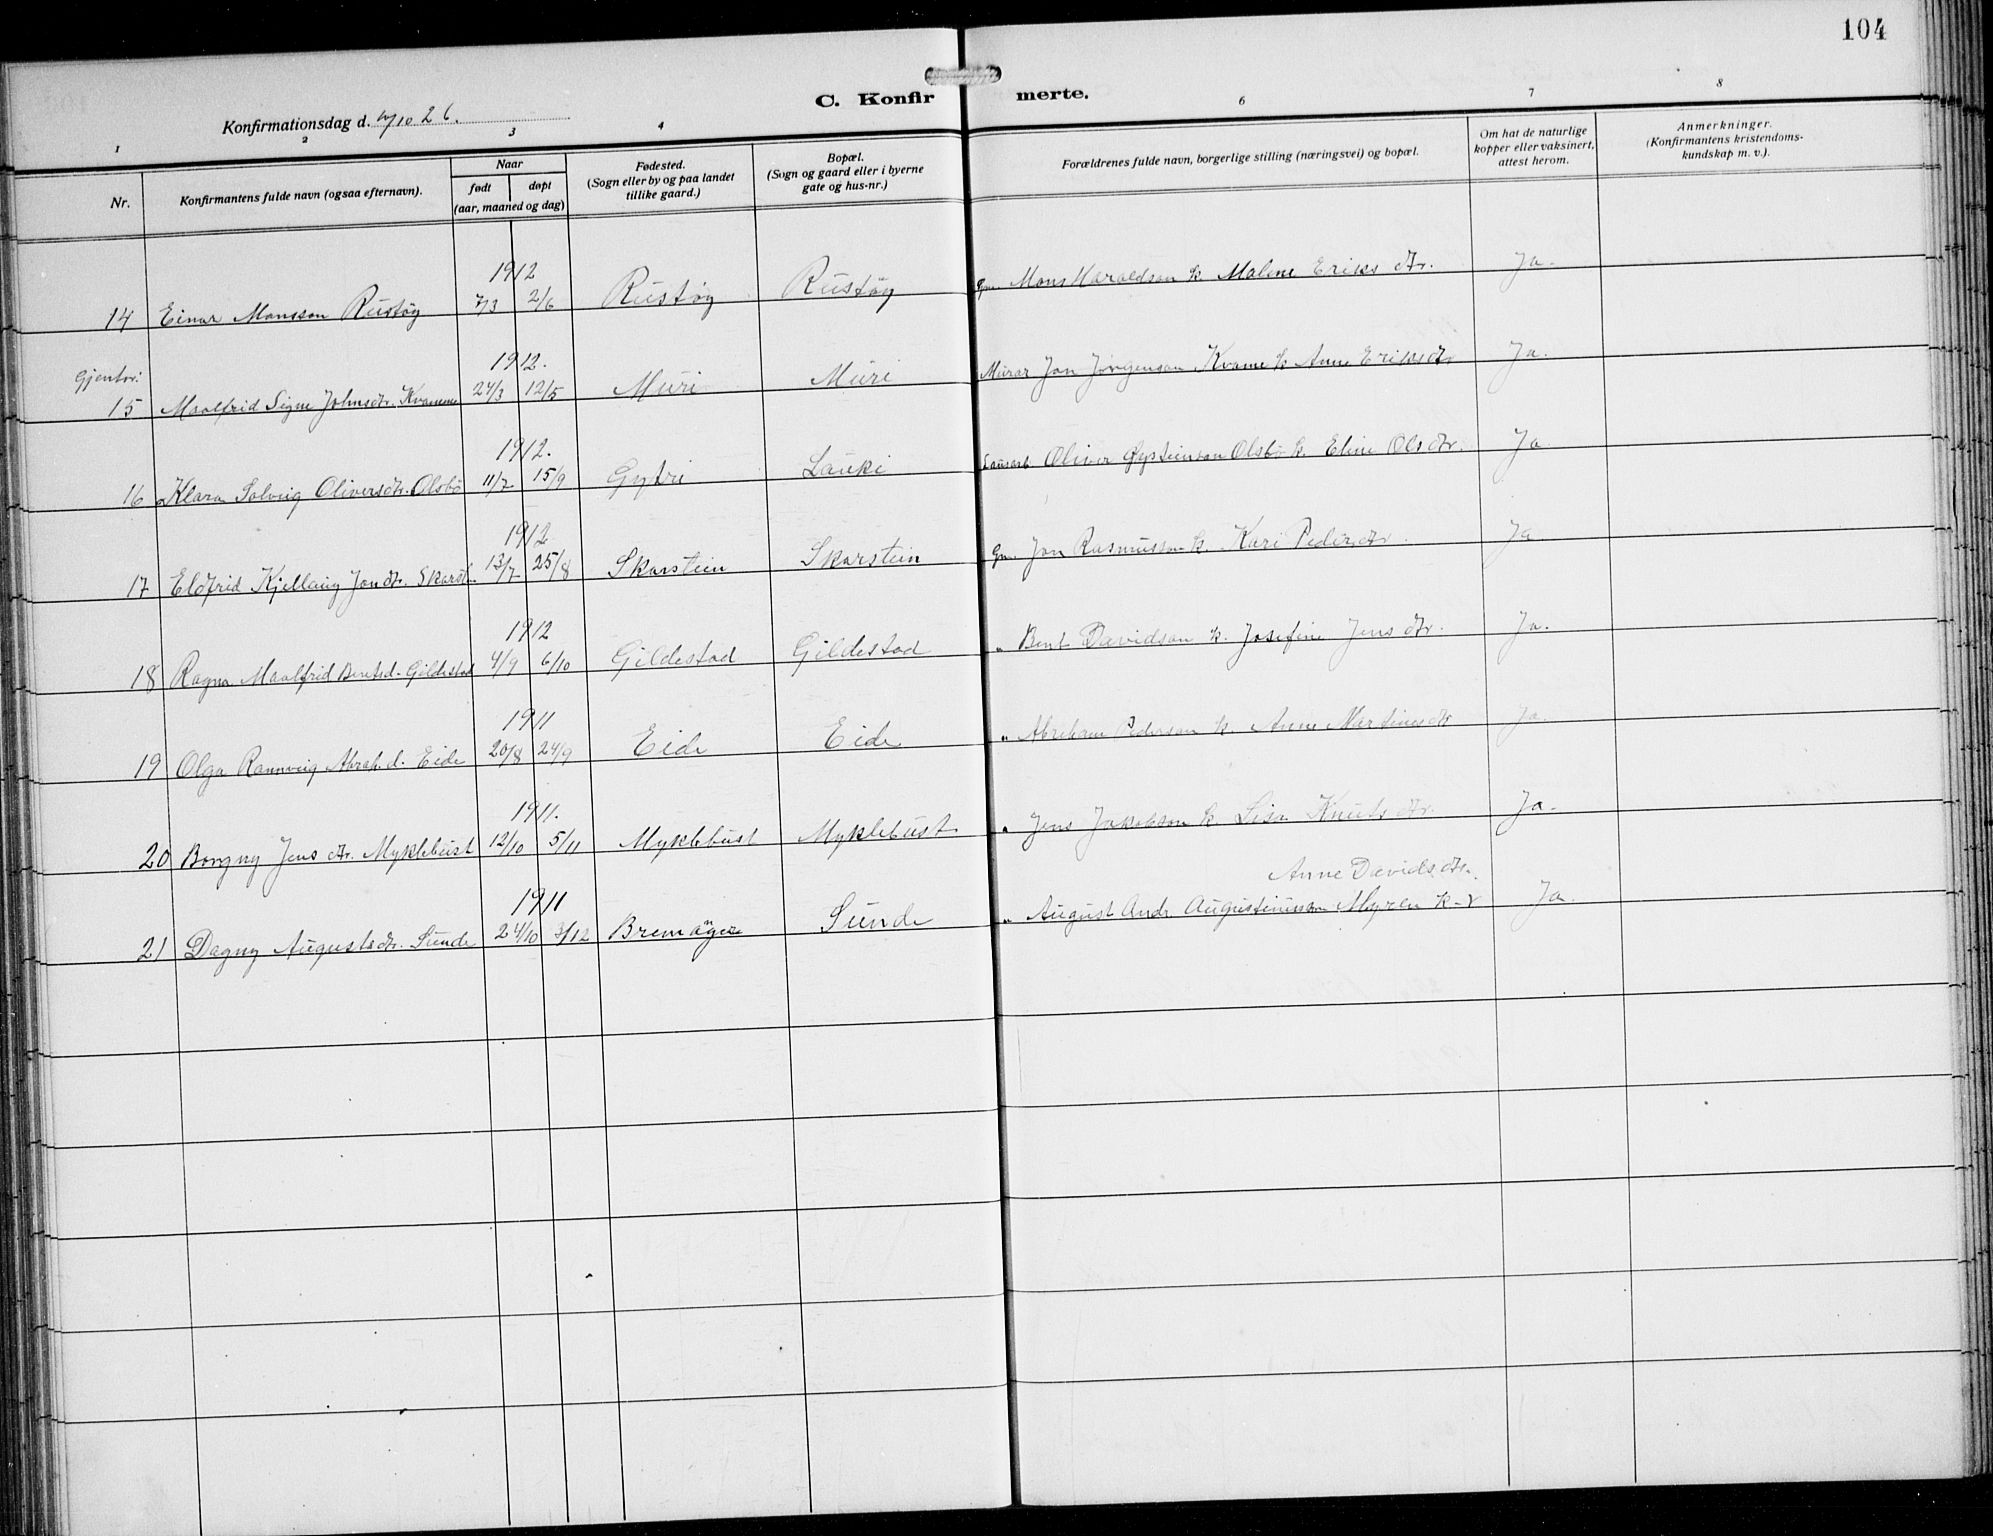 104
C. Konfirmerte.
Konfirmationsdag d. /10 26.
1 2 3 4 6 7 8
Nr.
Konfirmantens fulde navn (ogsaa efternavn).
Naar
født døpt
(aar, maaned og dag)
Fødested.
(Sogn eller by og paa landet
tillike gaard.)
Bopæl.
(Sogn og gaard eller i byerne
gate og hus-nr.)
Forældrenes fulde navn, borgerlige stilling (næringsvei) og bopæl.
Om hat de naturlige
kopper eller vaksinert,
attest herom.
Anmerkninger.
(Konfirmantens kristendoms-
kundskap m. v.).
1912
14 Einar Monsson Rustøy 7/3 2/6 Rustøy Rustøy Gm. Mons Haraldson k. Malene Eriks dtr. Ja.
Gjentor: 1912.
15 Maalfrid Signe Johnsdtr. Kvamme 24/3 12/5 Muri Muri Murar Jon Jørgenson Kvame k. Anne Eriksdtr Ja.
1912.
16 Klara Solveig Oliversdtr. Olsbø 11/7 15/9 Gytri Lauki Oliver Øysteinson Olsbø k. Eline Ols dtr. Ja
1912
17 Elofrid Kjellaug Jondtr. Skarst. 13/7 25/8 Skarstein Skarstein Gm. Jon Rasmusson k. Kari Pedersdtr. Ja
1912
18 Ragna Maalfrid Bentsd. Gildestad 4/9 6/10 Gildestad Gildestad " Bent Davidson k. Josefine Jens dtr. Ja.
1911
19 Olga Rannveig Abrah. d. Eide 20/8 24/9 Eide Eide " Abraham Pederson k. Anne Martinusdtr Ja
1911.
20 Borgny Jens dtr. Myklebust 12/10 5/11 Myklebust Myklebust " Jens Jakobson k. Lisa Knuts dtr. Ja.
Anne Davids dtr.
1911
21 Dagny Augustsdtr. Sunde 24/10 3/12 Bremøger Sunde " August Andr. Augustinusson Myren k. Ja.